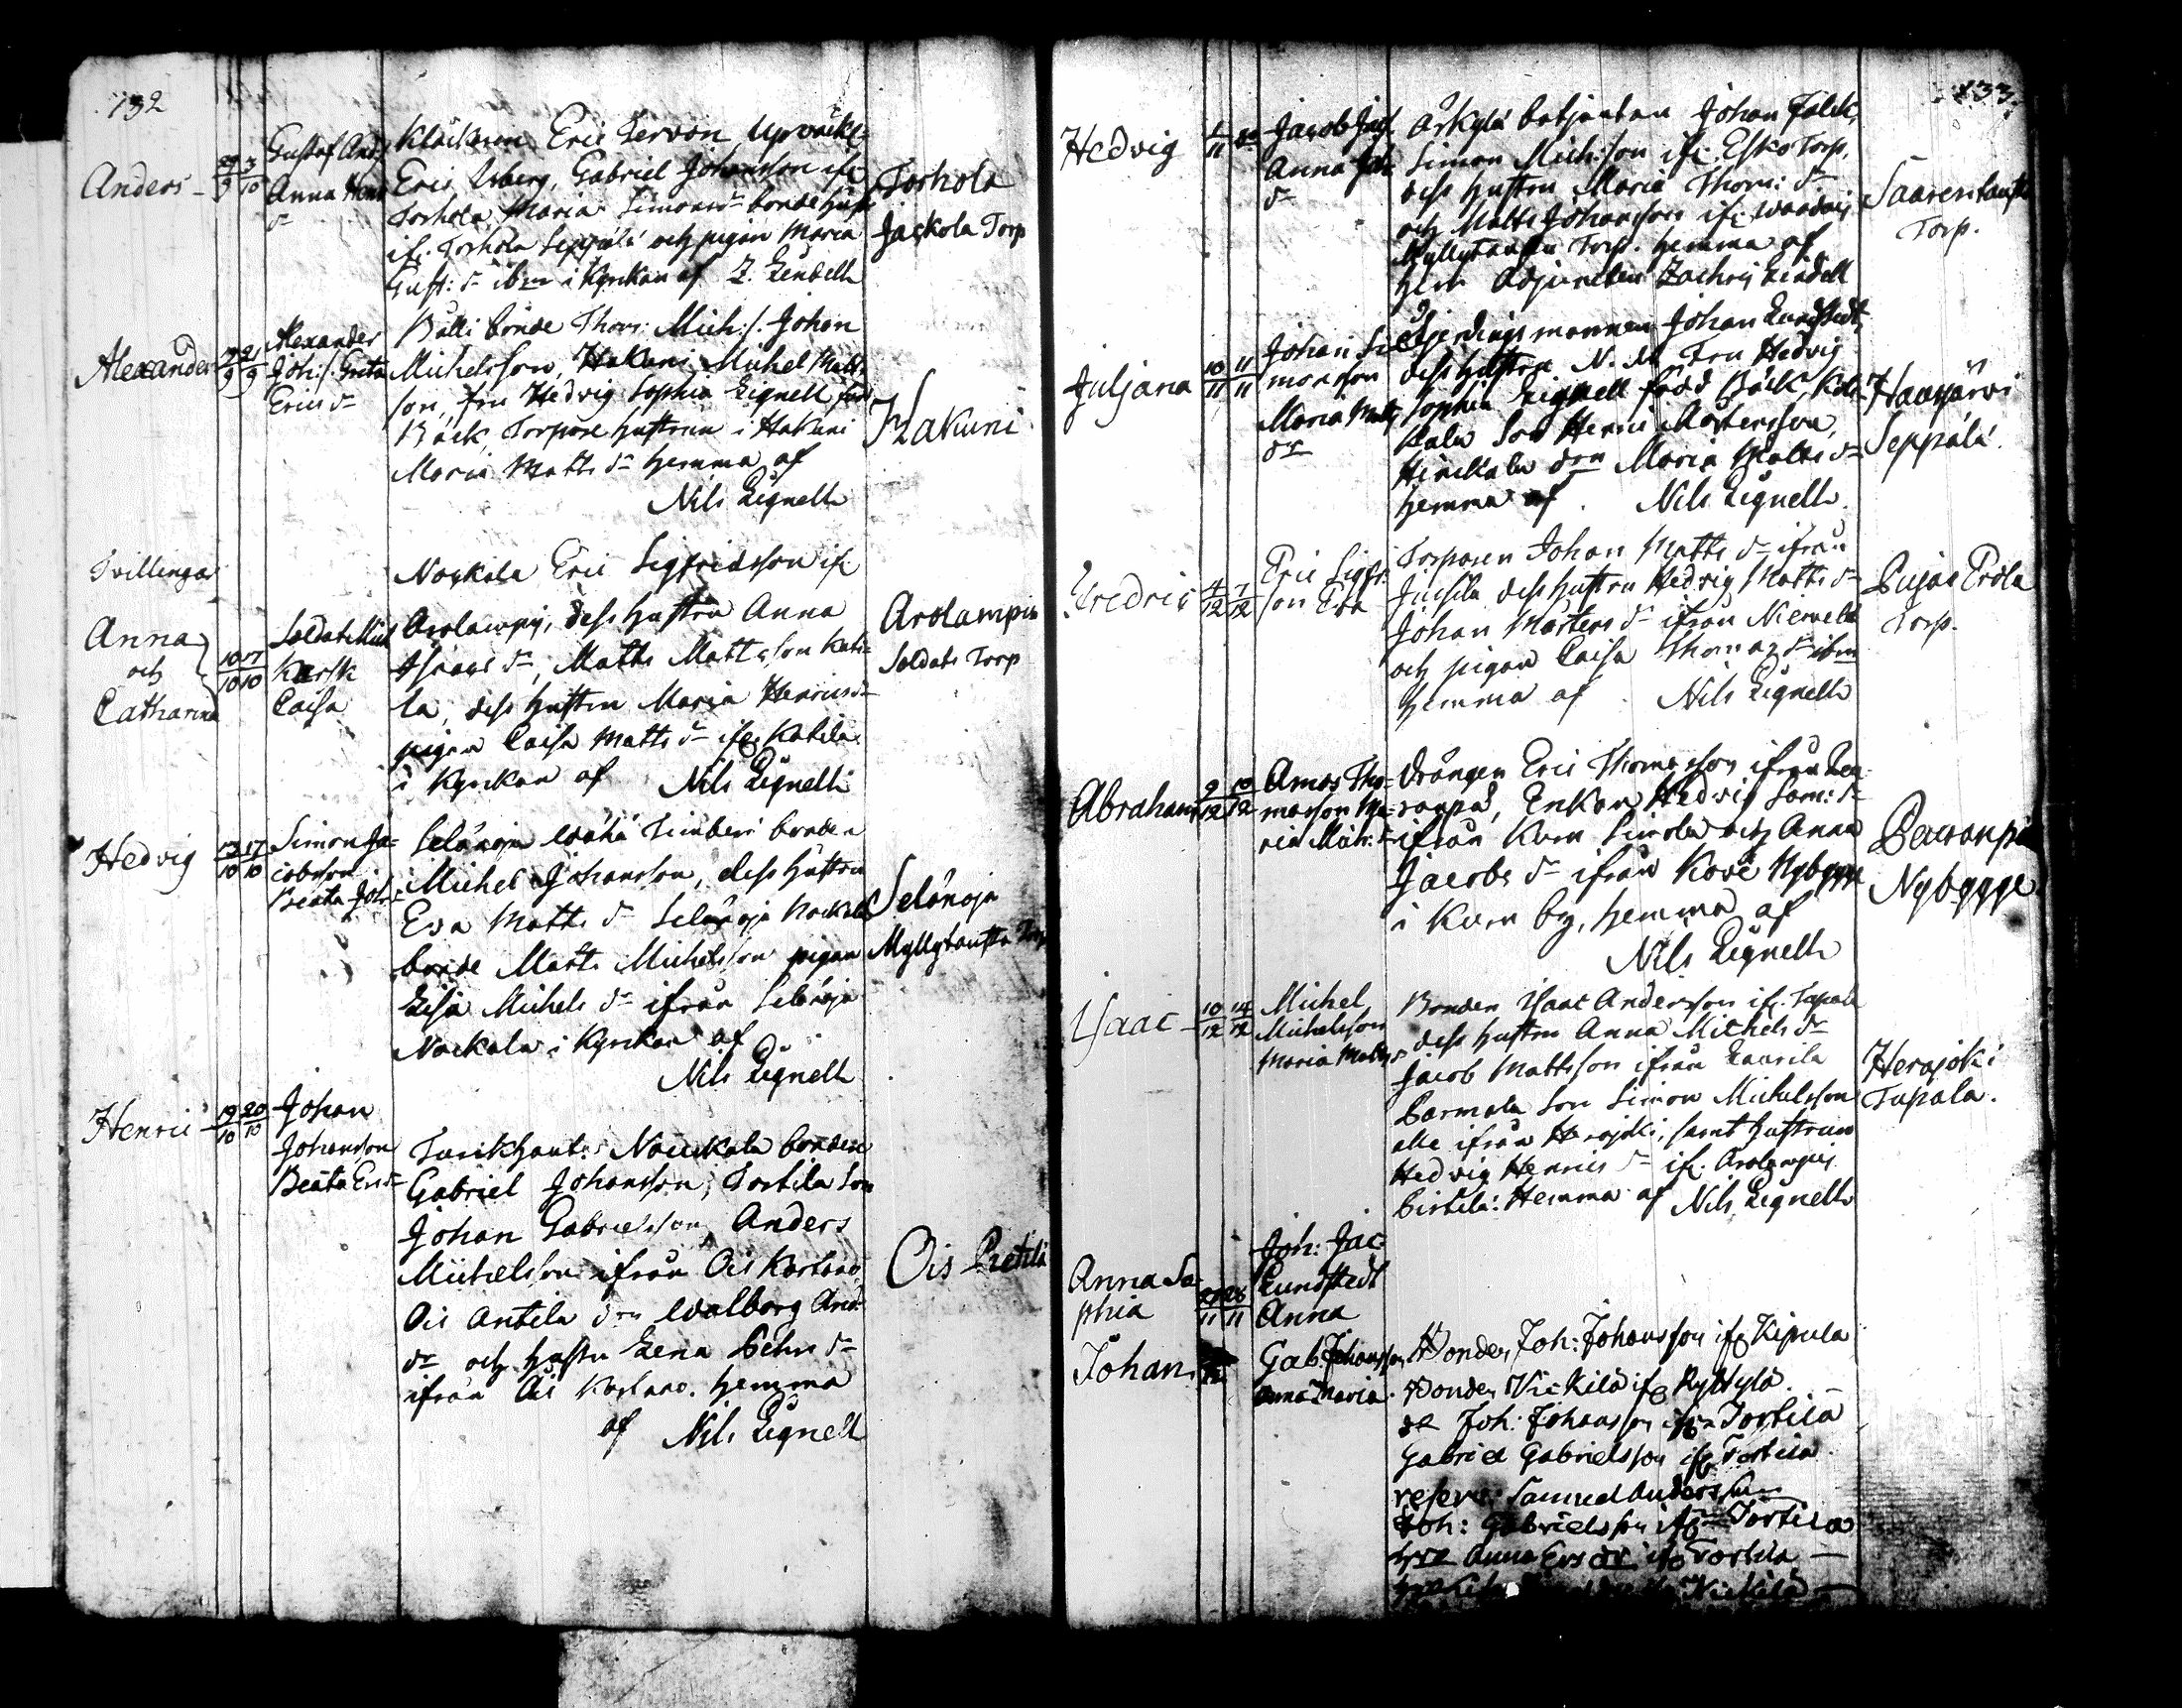 132
Anders
29 3
9 10
Gustaf And
Anna Hen
dr
Klåckaren Eric Lervon
Eric Usberg, Gabriel Johansson if:
Torhola Maria Simonsdr bonde hust
if. Torhola Seppälä och pigan Maria
Gust: dr ibm i Kyrkan af Z. Lindell
Torhola
Jackola Torp
Alexander
21
9 9
Alexander
Joh:s. Greta
Erics dr
Bälli bonde Thom: Mich:s. Johan
Michelsson, Hakuni Michel Matts
son, fru Hedvig Sophia Lignell föd
Bäck, Torpare hustrun i Hakuni
Maria Matts dr hemma af
Nils Lignell
Hakuni
Tvillingar
Anna
och
Catharina
10 17
10 10
Soldat Mich
Karsk
Caisa
Nackila Eric Sigfridsson if:
Arolampi, dess hustru Anna
Isaacs dr, Matts Mattsson Kati
la, dess hustru Maria Henricsdr
pigan Caisa Matts dr if: Katila
i Kyrkan af Nils Lignell
Arolampi
Soldats Torp
Hedvig
13 17
10 10
Simon Ja-
cobsson
Beata Joh
Selänoja Wähä Timberi bonden
Michel Johansson, dess hustru
Eva Matts dr Selänoja Nackala
bonde Matts Michelsson pigan
Lisa Michels dr ifrån Selänoja
Nackala i Kyrkan af
Nils Lignell
Selänoja
Myllytausta Torp
Henric
19 20
10 10
Johan
Johansson
Beata Ersdr
Turikhaut: Nauckala bonden
Gabriel Johansson, Tortila Son
Johan Gabrielsson, Anders
Michelsson ifrån Ois Kartano
Ois Antila drn Walborg And
dr och hustru Lena dr
ifrån Ois Kartano. hemma
af Nils Lignell
Ois Pietilä
133.
Hedvig
1
11
Jacob Jac
Anna Joh
dr
Årkylä betjenten Johan Falck,
Simon Mich:son if: Esko Torp,
dess hustru Maria Thom: dr
och Matts Johansson if:
Myllytausta Torp. hemma af
Herr Adjuncten Zachris Lindell
Saarentausta
Torp.
Juljana
10 11
11 11
Johan Si-
monsson
Maria Matts
dr
Fjerdingsmannen Johan Lundstedt,
dess hustru N. N, Fru Hedvig
Sophia Lignell född Bäck,
kala Son Henric Mårtensson,
drn Maria Matts dr
hemma af Nils Lignell.
Haapjärvi
Seppälä.
Fredric
4 7
12 12
Eric Sigfr:
son Eva
Torparen Johan Matts dr ifrån
dess hustru Hedvig Matts dr
Johan Mårtens dr ifrån Niemelä
och pigan Caisa Thomas dr ibm
hemma af Nils Lignell
Erola
Torp.
Abraham
9 10
12 12
Amos Tho-
masson Ma-
ria Mich: dr
Drängen Eric Thomasson ifrån
Enkan Hedvig Sam: dr
ifrån Kum Simola och Anna
Jacobs dr ifrån Kove Nybygge
i Kum by, hemma af
Nils Lignell
Nybygge
Isaac
10 14
12 12
Michel
Michelsson
Maria Matts dr
Bonden Isaac Andersson if. Tupala
dess hustru Anna Michels dr
Jacob Mattsson ifrån Laurila
Son Simon Michelsson
alle ifrån Herajoki, samt hustrun
Hedvig Henrics dr if: Arolampi
Hemma af Nils Lignell
Herajoki
Tupala.
Anna So-
phia
27 28
11 11
Joh: Jac:
Lundstedt
Anna
Johan
12
Gab. Johansson
Anna Maria
Bonden Joh: Johansson if Kipula
Bonden Nickilä if Ryttylä.
Joh: Johansson ifrn Tortila
Gabriel Gabrielsson if Tortila
reserv: Samuel Andersson
Joh: Gabrielsson ifrn Tortila
Anna Ers dr if Tortila
Nickilä